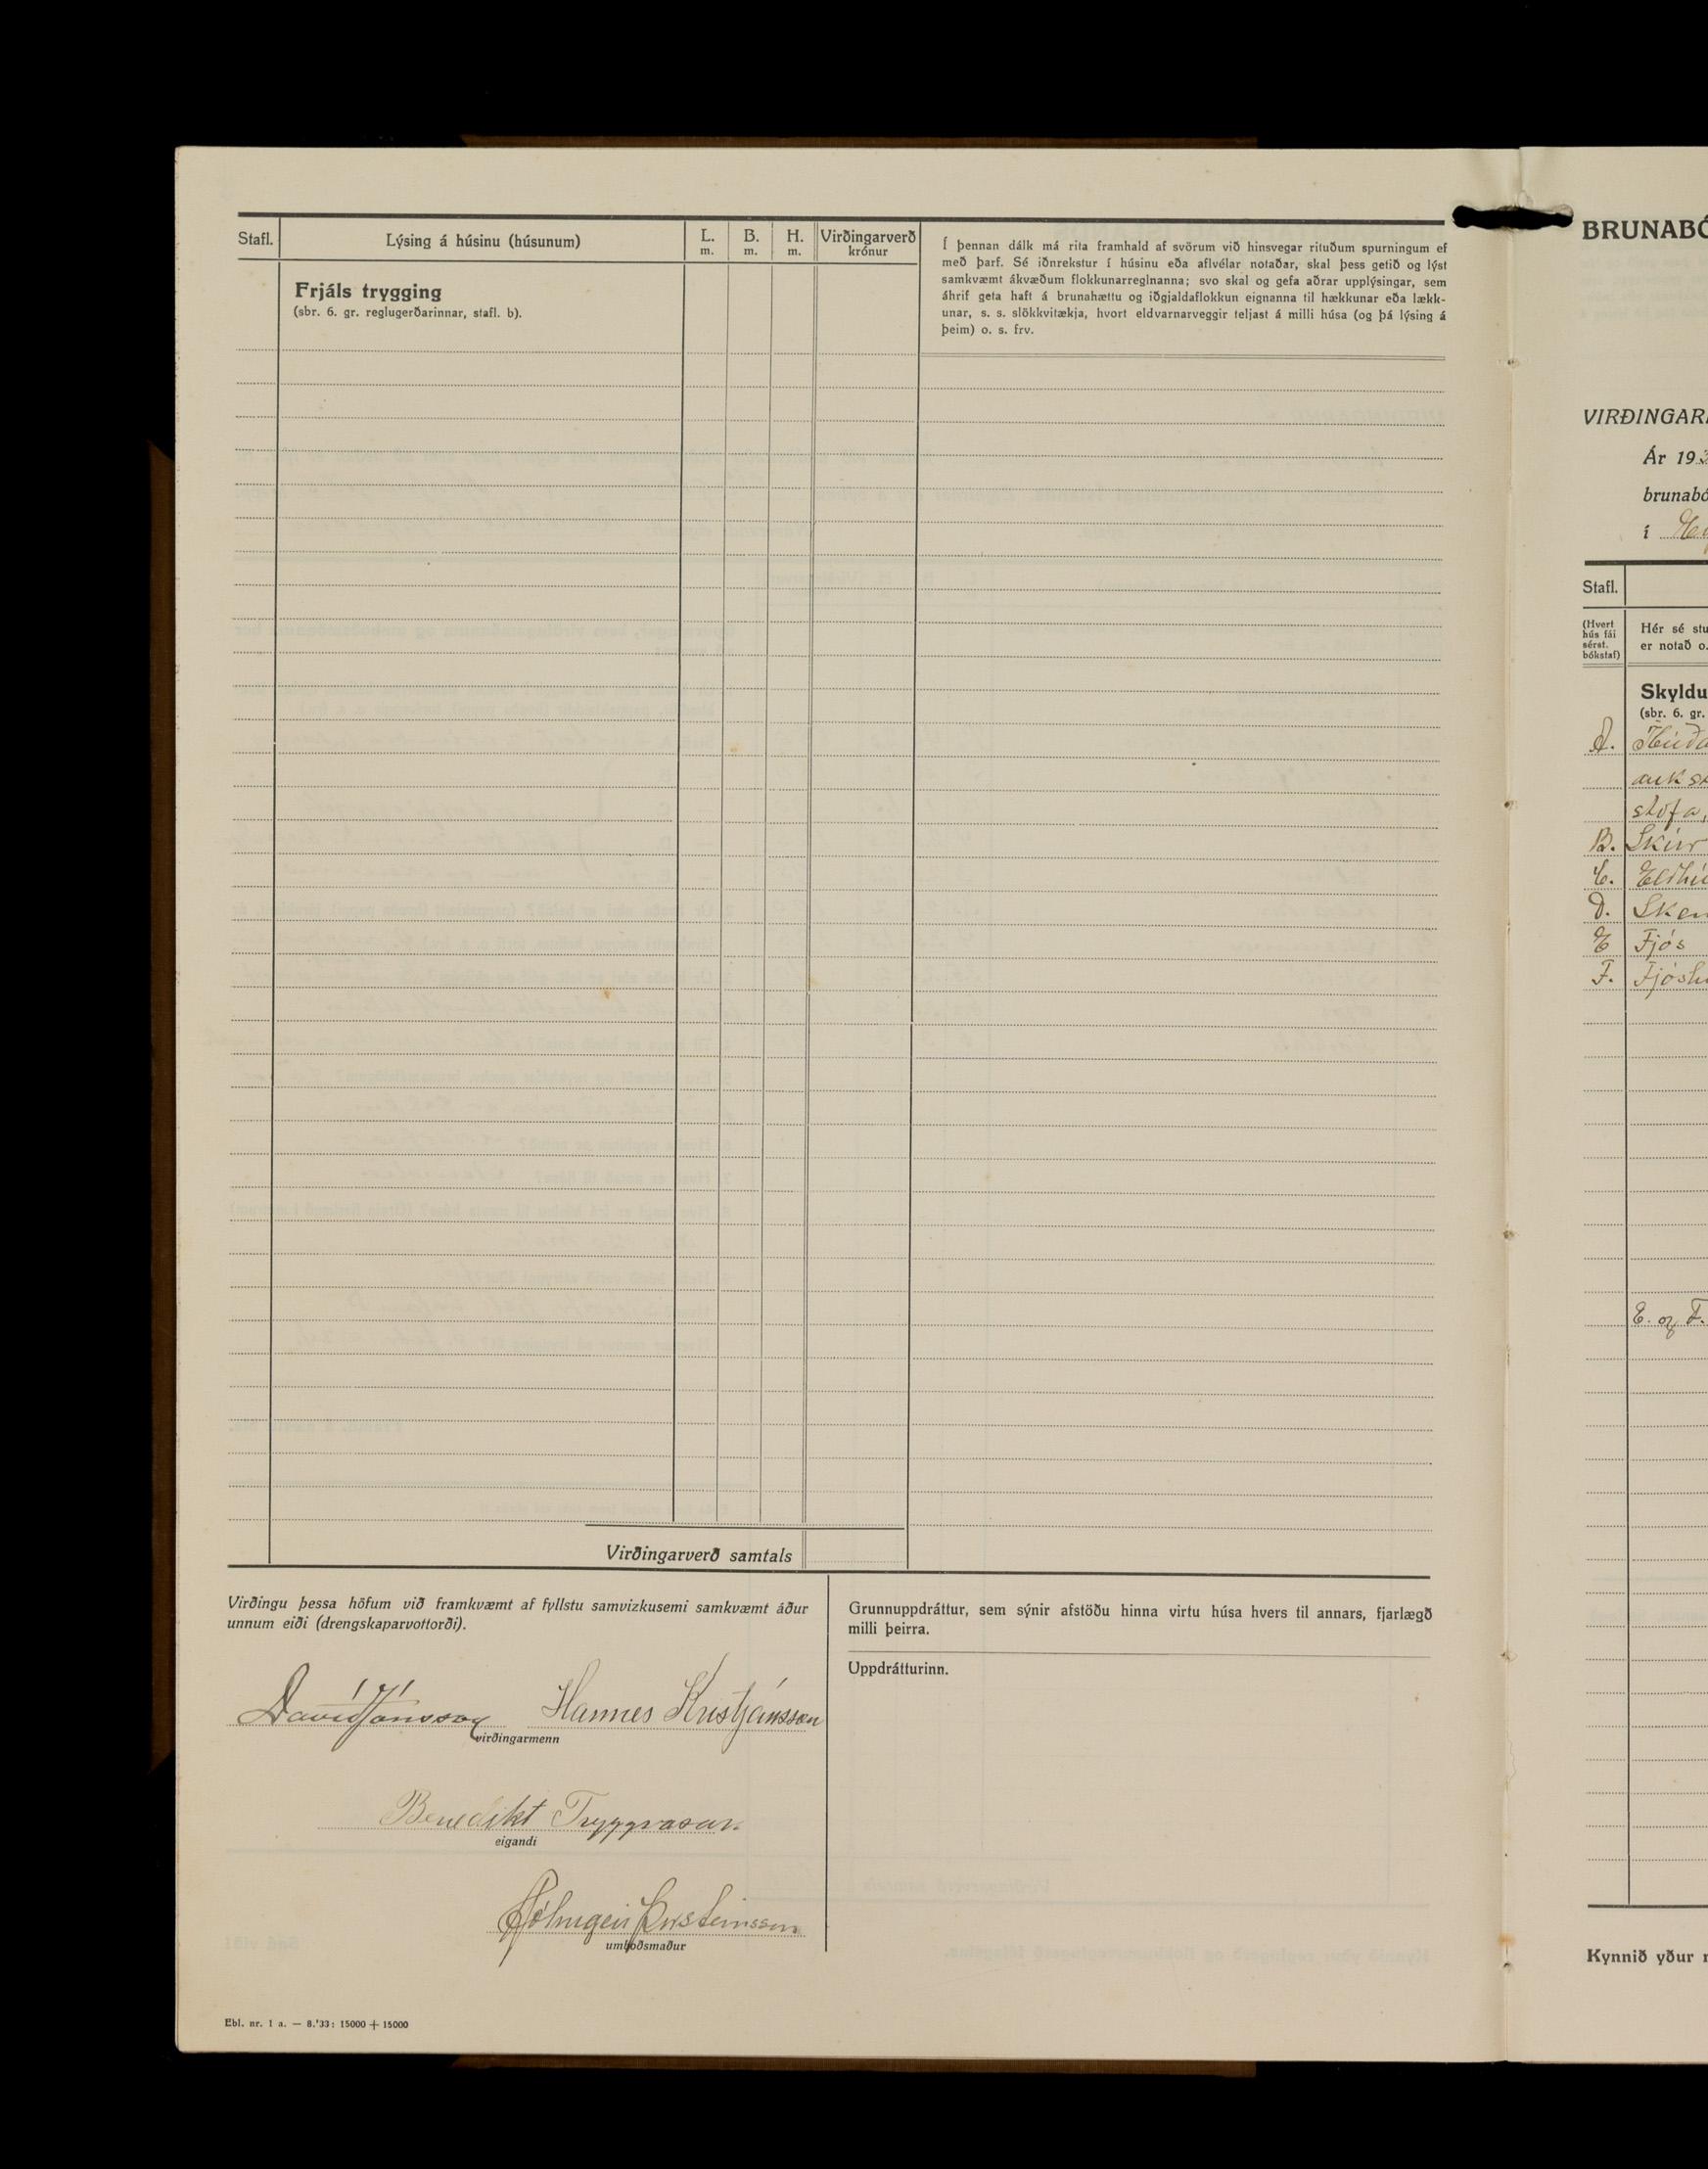 Stafl.
Lýsing á húsinu (húsunum)
L.
m.
B.
m.
H.
m.
Virðingarverð
krónur
Frjáls trygging
(sbr. 6. gr. reglugerðarinnar, stafl. b).
Í þennan dálk má rita framhald af svörum við hinsvegar rituðum spurningum ef
með þarf. Sé iðnrekstur í húsinu eða aflvélar notaðar, skal þess getið og lýst
samkvæmt ákvæðum flokkunarreglnanna; svo skal og gefa aðrar upplýsingar, sem
áhrif geta haft á brunahættu og iðgjaldaflokkun eignanna til hækkunar eða lækk-
unar, s. s. slökkvitækja, hvort eldvarnarveggir teljast á milli húsa (og þá lýsing á
þeim) o. s. frv.
Virðingarverð samtals
Virðingu þessa höfum við framkvæmt af fyllstu samvizkusemi samkvæmt áður
unnum eiði (drengskaparvottorði).
Davíð Jónsson Hannes Kristjánsson
virðingarmenn
Benedikt Tryggvason
eigandi
Hólmgeir Þorsteinsson
umboðsmaður
Grunnuppdráttur, sem sýnir afstöðu hinna virtu húsa hvers til annars, fjarlægð
milli þeirra.
Uppdrátturinn.
Ebl. nr. 1 a. — 8.'33: 15000 + 15000
BRUNABÓ
VIRÐINGAR
Ár 193
brunabó
í
Stafl.
(Hvert
hús fái
sérst.
bókstaf)
Hér sé stu
er notað o.
Skyldu
(sbr. 6. gr.
A.
auk
stofa,
B. Skúr
C. Eldhú
D. Skem
E Fjós
F. Fjósh
E. og F.
Kynnið yður r